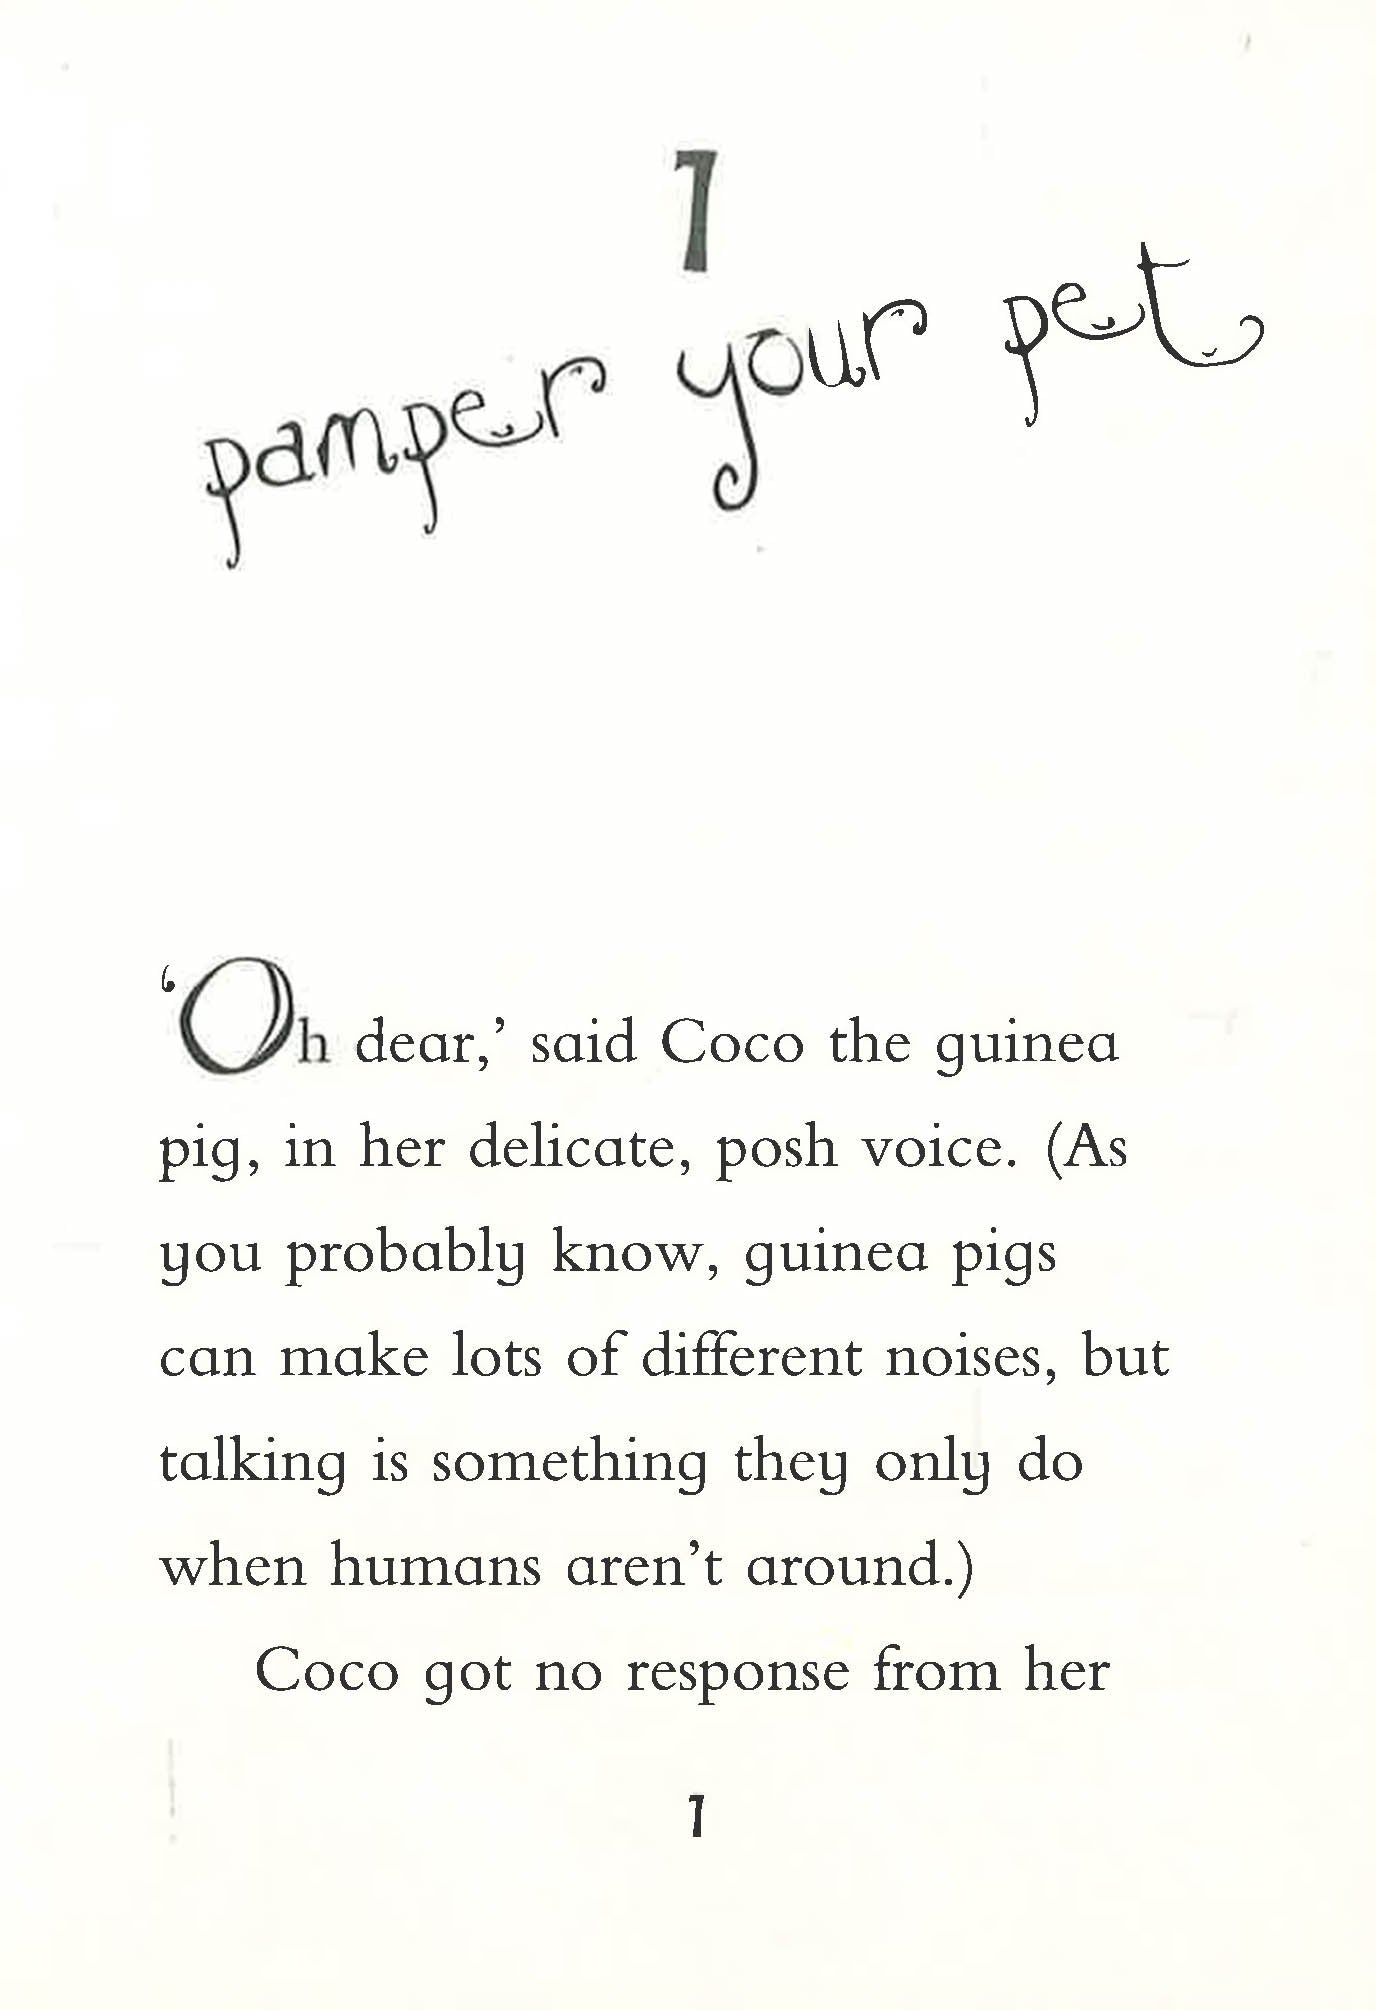 1
pamper your pet
‘Oh dear,’ said Coco the guinea
pig, in her delicate, posh voice. (As
you probably know, guinea pigs
can make lots of different noises, but
talking is something they only do
when humans aren’t around.)
Coco got no response from her
1